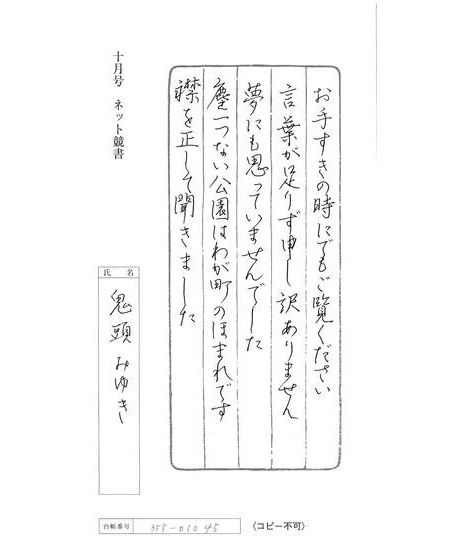 お手すきの時にでもご覧ください
言葉が足りず申し訳ありません
夢にも思っていませんでした
塵一つない公園はわが町のほまれです
襟を正して聞きました
十月号 ネット競書
氏名
鬼頭みゆき
台帳番号 355-01045
〈コピー不可〉